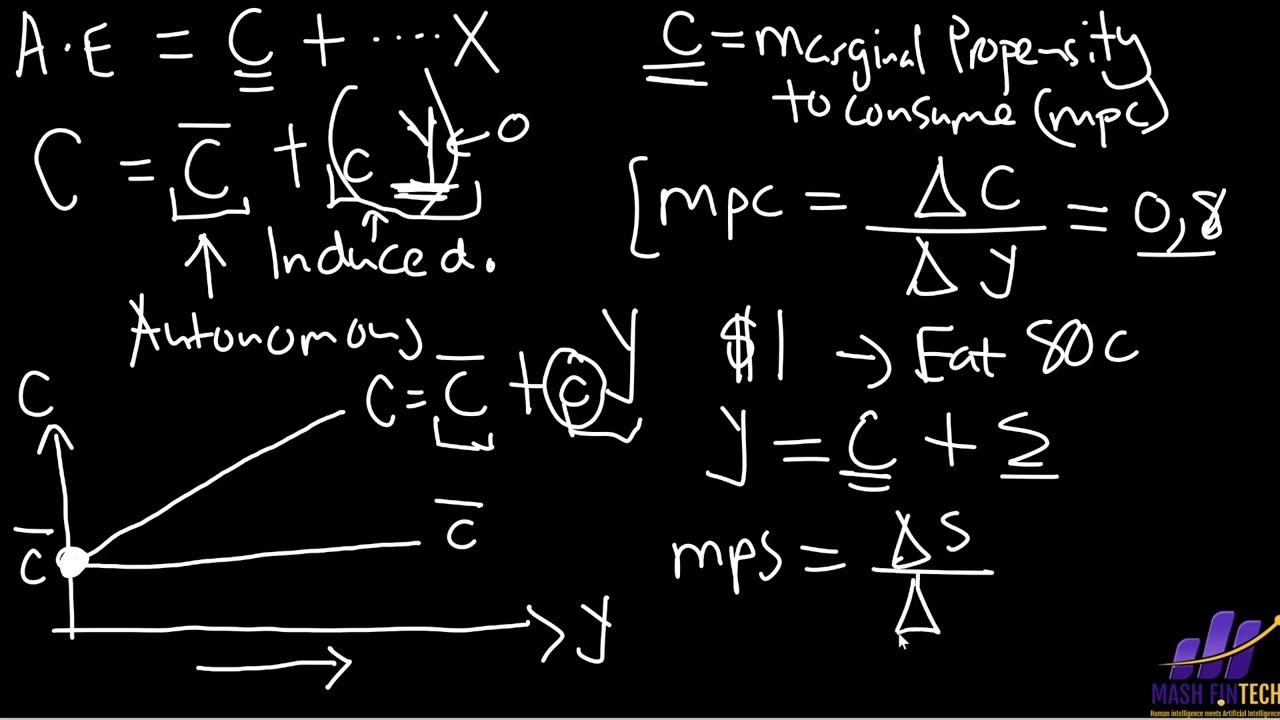 A.E = C + ....X
C = C̅ + (cY) ← 0
Induced.
Autonomous
C
C = C̅ + cY
C̅
C̅
Y
C = marginal Propensity
to consume (mpc)
[mpc = ΔC
Δy
= 0,8
$1 → Eat 80c
y = C + S
mps = ΔS
Δ
MASH FINTECH
Human intelligence meets Artificial Intelligence